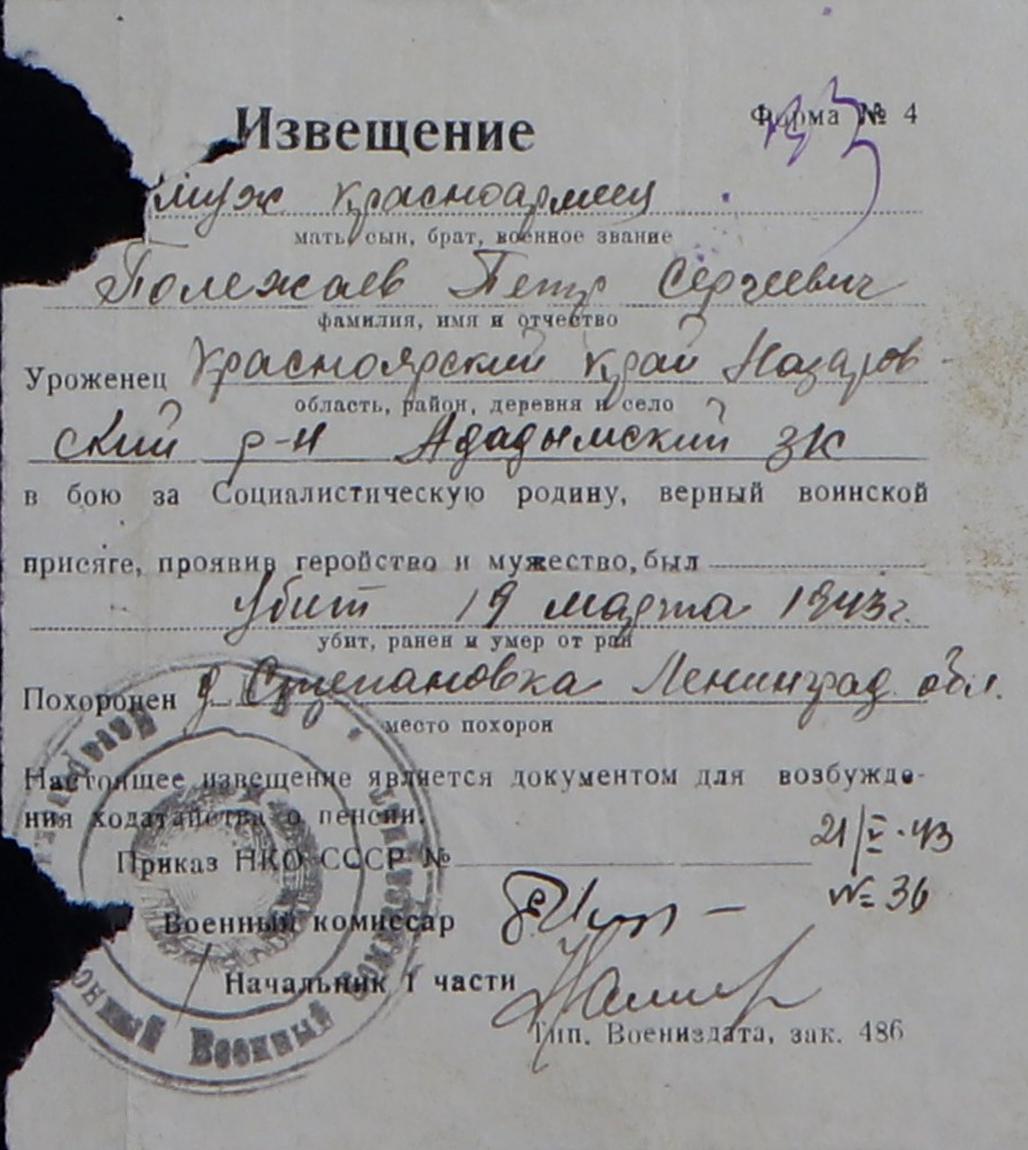 Форма № 4
Извещение
муж красноармеец
мать, сын, брат, военное звание
Полежаев Петр Сергеевич
фамилия, имя и отчество
Уроженец Красноярский край Назаров-
область, район, деревня и село
ский р-н Ададымский ЗК
в бою за Социалистическую родину, верный воинской
присяге, проявив геройство и мужество, был
убит 19 марта 1943 г.
убит, ранен и умер от ран
Похоронен д. Степановка Ленинград. обл.
место похорон
Настоящее извещение является документом для возбужде-
ния ходатайства о пенсии.
21/V-43
Приказ НКО СССР №
№ 36
Военный комиссар
Начальник 1 части
Тип. Воениздата, зак. 486
Военный